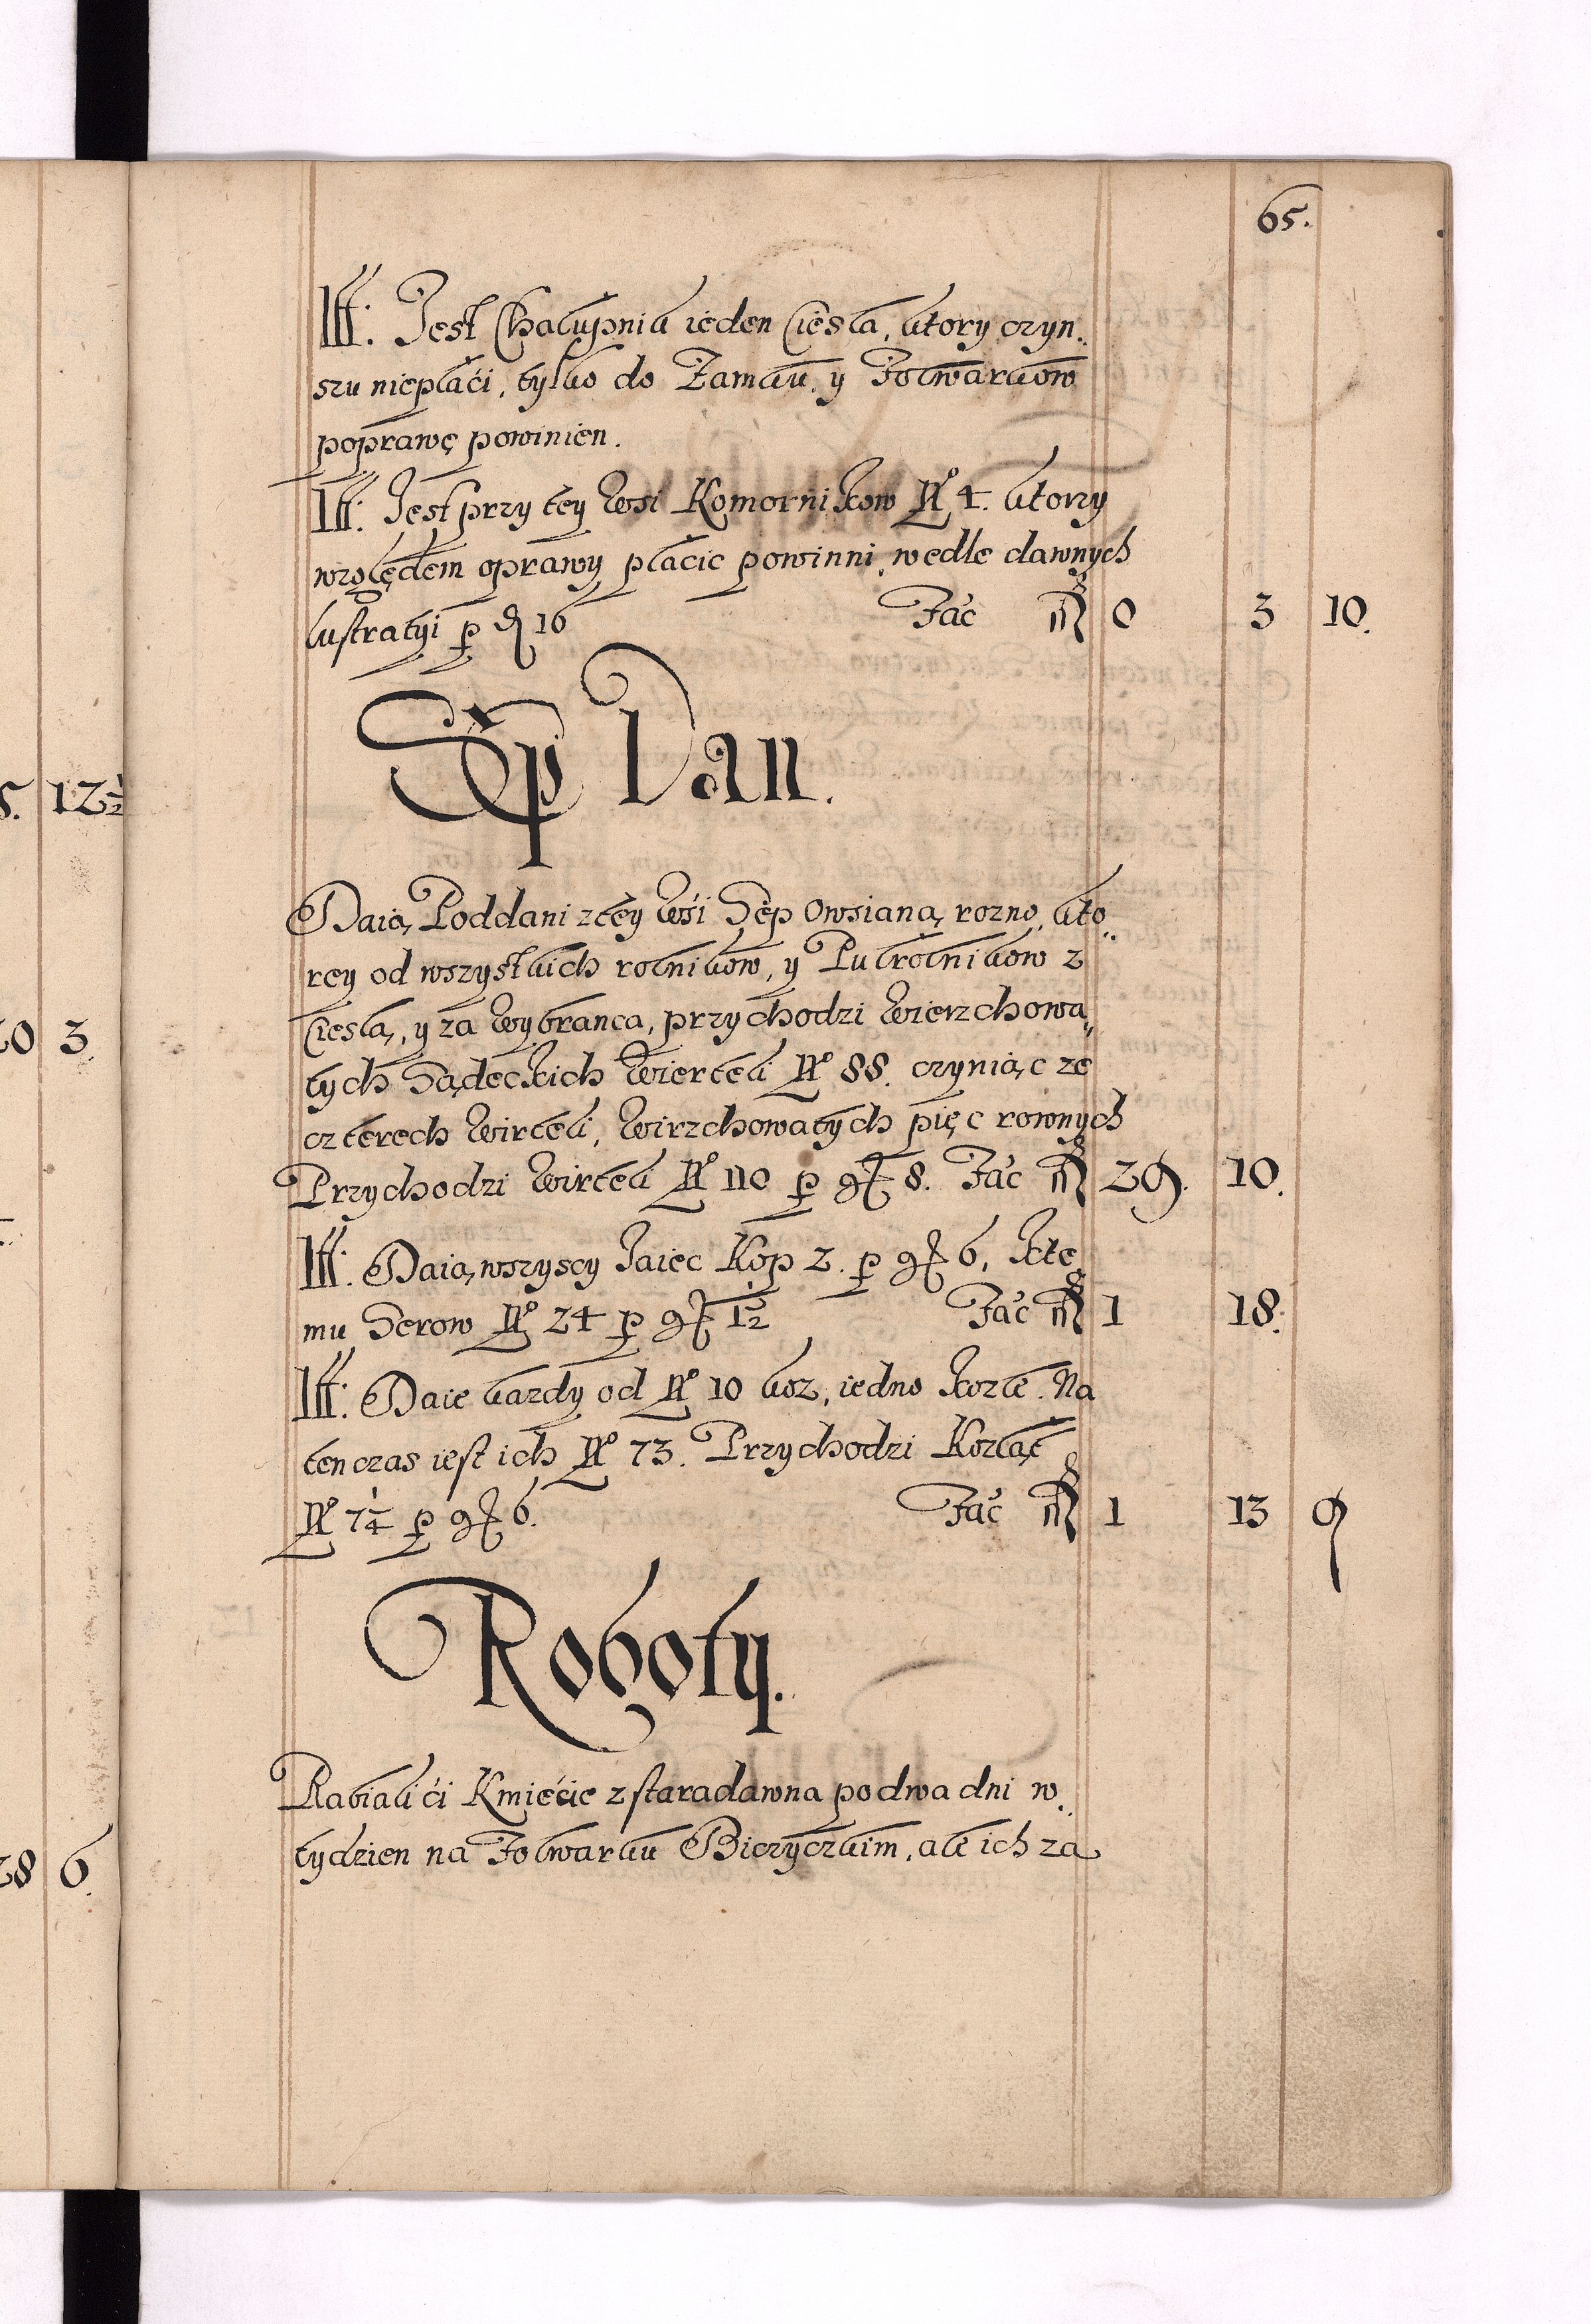 65.
Itt: Jest Chałupnik ieden Ciesla, ktory czyn:
szu niepłaći, tylko do Zamku, y Folwarkow
poprawę powinien.
Itt: Jest przy tey Wsi Komornikow No 4. ktorzy
względem oprawy płacic powinni, wedle dawnych
lustratyi p d 16 Fac f 0 3 10.
Sęp Dan.
Daią Poddani z tey Wśi Sęp Owsianą rozno, kto:
rey od wszystkich rolnikow, y Pułrolnikow z
Cieslą, y za Wybranca, przychodzi Wierzchowa:
tych Sądeckich Wiertel No 88. czyniąc ze
czterech Wirtel, Wirzchowatych pięc rownych
Przychodzi Wirtel No 110 p gr 8. Fac f 29. 10.
Itt: Daią wszyscy Jaiec Kop 2. p gr 6, Kte
mu Serow No 24 p gr 1½ Fac f 1 18.
Itt: Daie kazdy od No 10 koz, iedno kozle. Na
ten czas iest ich No 73. Przychodzi Kozląt
No 7¼ p gr 6. Fac f 1 13 9
Roboty.
Rabiali ći Kmiećie z staradawna po dwa dni w
tydzien na Folwarku Biczyczkim, ale ich za
5. 12½
20 3
28 6.